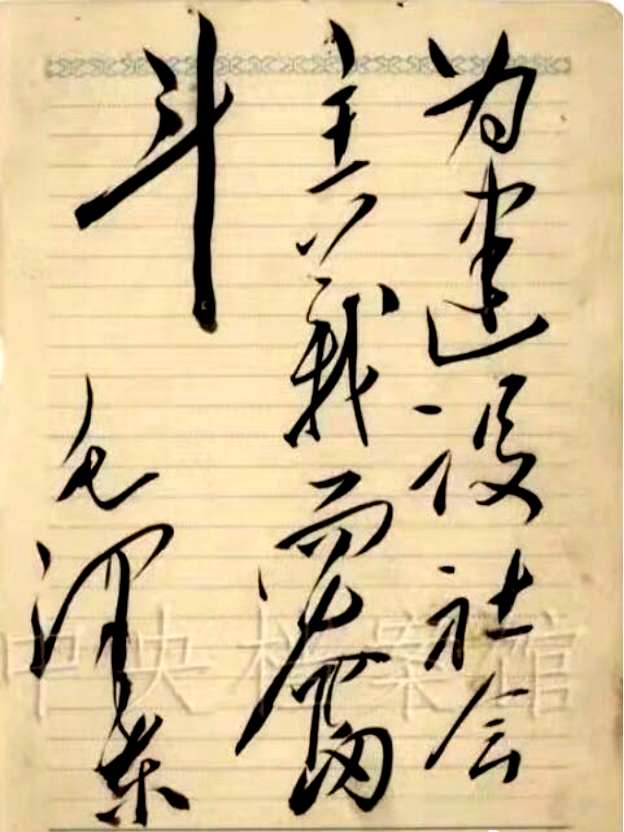 为建设社会
主義而奮
斗
毛泽东
中央档案馆